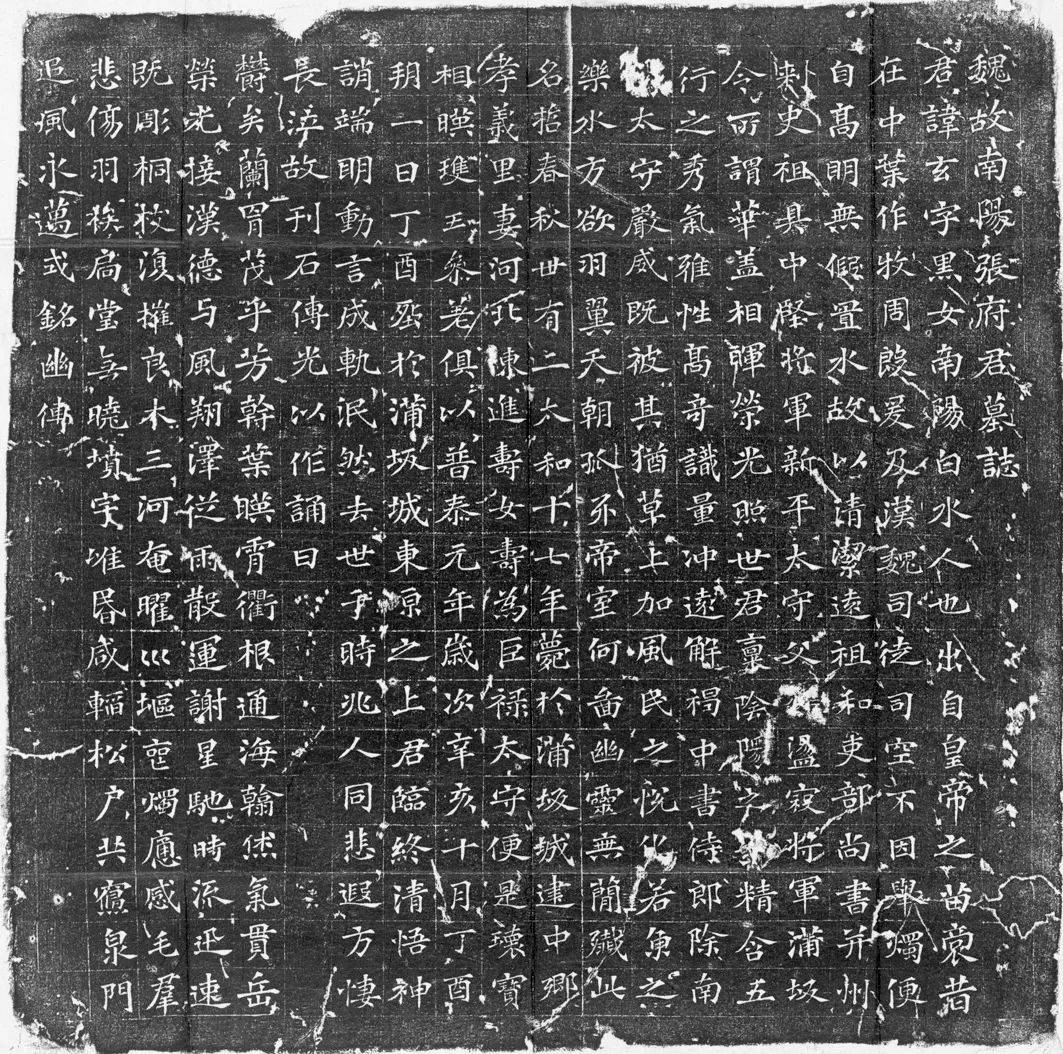 魏故南陽張府君墓誌
君諱玄字黑女南陽白水人也出自皇帝之苗裔昔
在中葉作牧周殷爰及漢魏司徒司空不因舉燭便
自高明無假置水故以清潔遠祖和吏部尚書并州
刺史祖具中堅將軍新平太守父盪寇將軍蒲坂
令所謂華蓋相暉榮光照世君稟陰陽字精含五
行之秀氣雅性高奇識量沖遠解褐中書侍郎除南
太守嚴威既被其猶草上加風民之悅化若魚之
樂水方欲羽翼天朝抓牙帝室何啚幽靈無簡殲此
名哲春秋卅有二太和十七年薨於蒲坂城建中鄉
孝義里妻河北陳進壽女壽為巨祿太守便是瓌寶
相暎瓊玉參差俱以普泰元年歲次辛亥十月丁酉
朔一日丁酉葬於蒲坂城東原之上君臨終清悟神
誚端明動言成軌泯然去世于時兆人同悲遐方悽
長泣故刊石傳光以作誦曰
鬱矣蘭胄茂乎芳幹葉暎霄衢根通海翰烋氣貫岳
榮光接漢德与風翔澤從雨散運謝星馳時流迅速
既彫桐枝復摧良木三河奄曜巛塸寚燭痛感毛群
悲傷羽族扃堂無曉墳宇唯昏咸輼松戶共寢泉門
追風永邁式銘幽傳